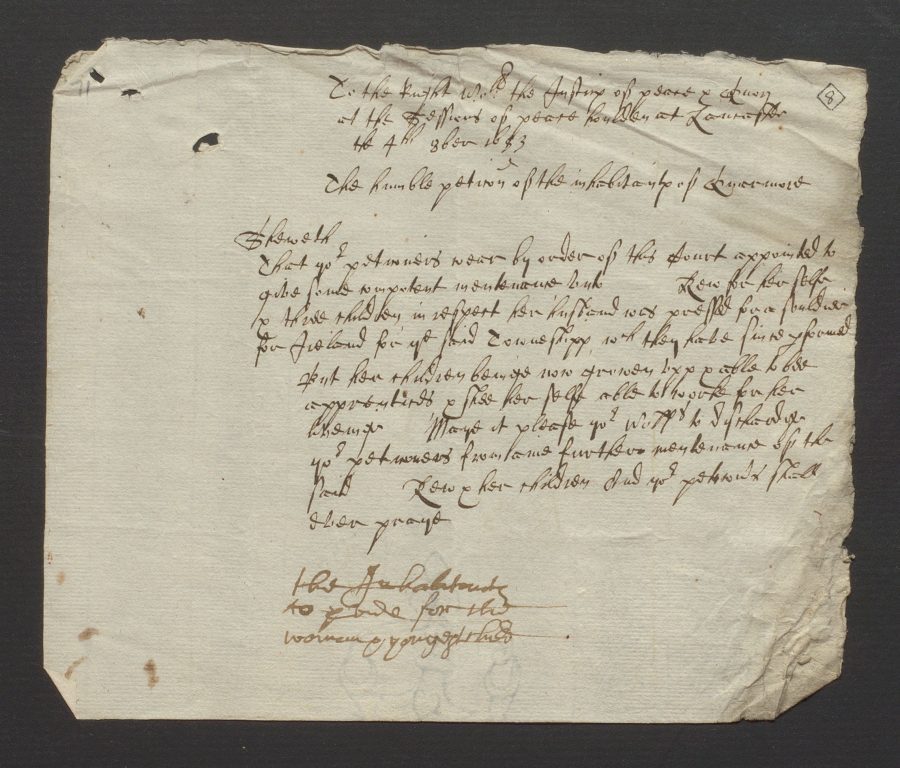 8
To the Right Wor: the Justices of peace & Quor
at the Sessions of peace houlden at Lancaster
the 4th 8ber 1653
The humble peticon of the inhabitants of Quarmore
Sheweth
That yor peticoners wear by order of this Court appointed to
give some competent mentenance unto Rew for her selfe
& three children in respect her husband was pressed for a souldier
for Ireland for ye said Towneshipp wch they have since pformed
But her children beinge now growen upp & able to bee
apprentices & shee her self able to worke for her
liveinge Maye it please yor Wopps to discharge
yor peticoners from anie further mentenance of the
said Rew & her children And yor peticoners shall
ever praye
the Inhabitants
to pvide for the
woman & yongest child